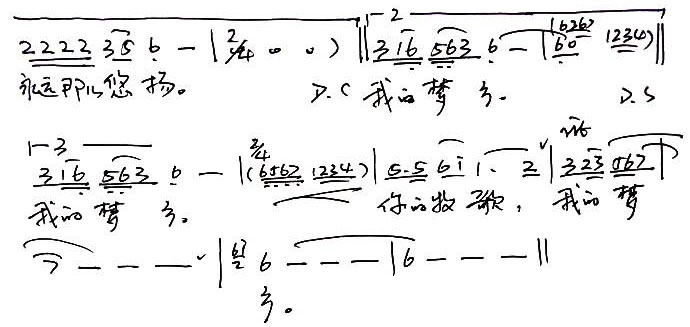 2222 35 6 — | 2/4 0 0 ) || 1-2 316 563 6 — | (6 0 6267 1234) ||
永远那么悠扬。 D.C 我的梦乡。 D.S
1-3 316 563 6 — | 2/4 (6567 1234) | 5.5 6i 1. 2 ˅ | 323 567 |
我的梦乡。 你的牧歌， 我的梦
7 — — — ˅ | 6 — — — | 6 — — — ||
乡。